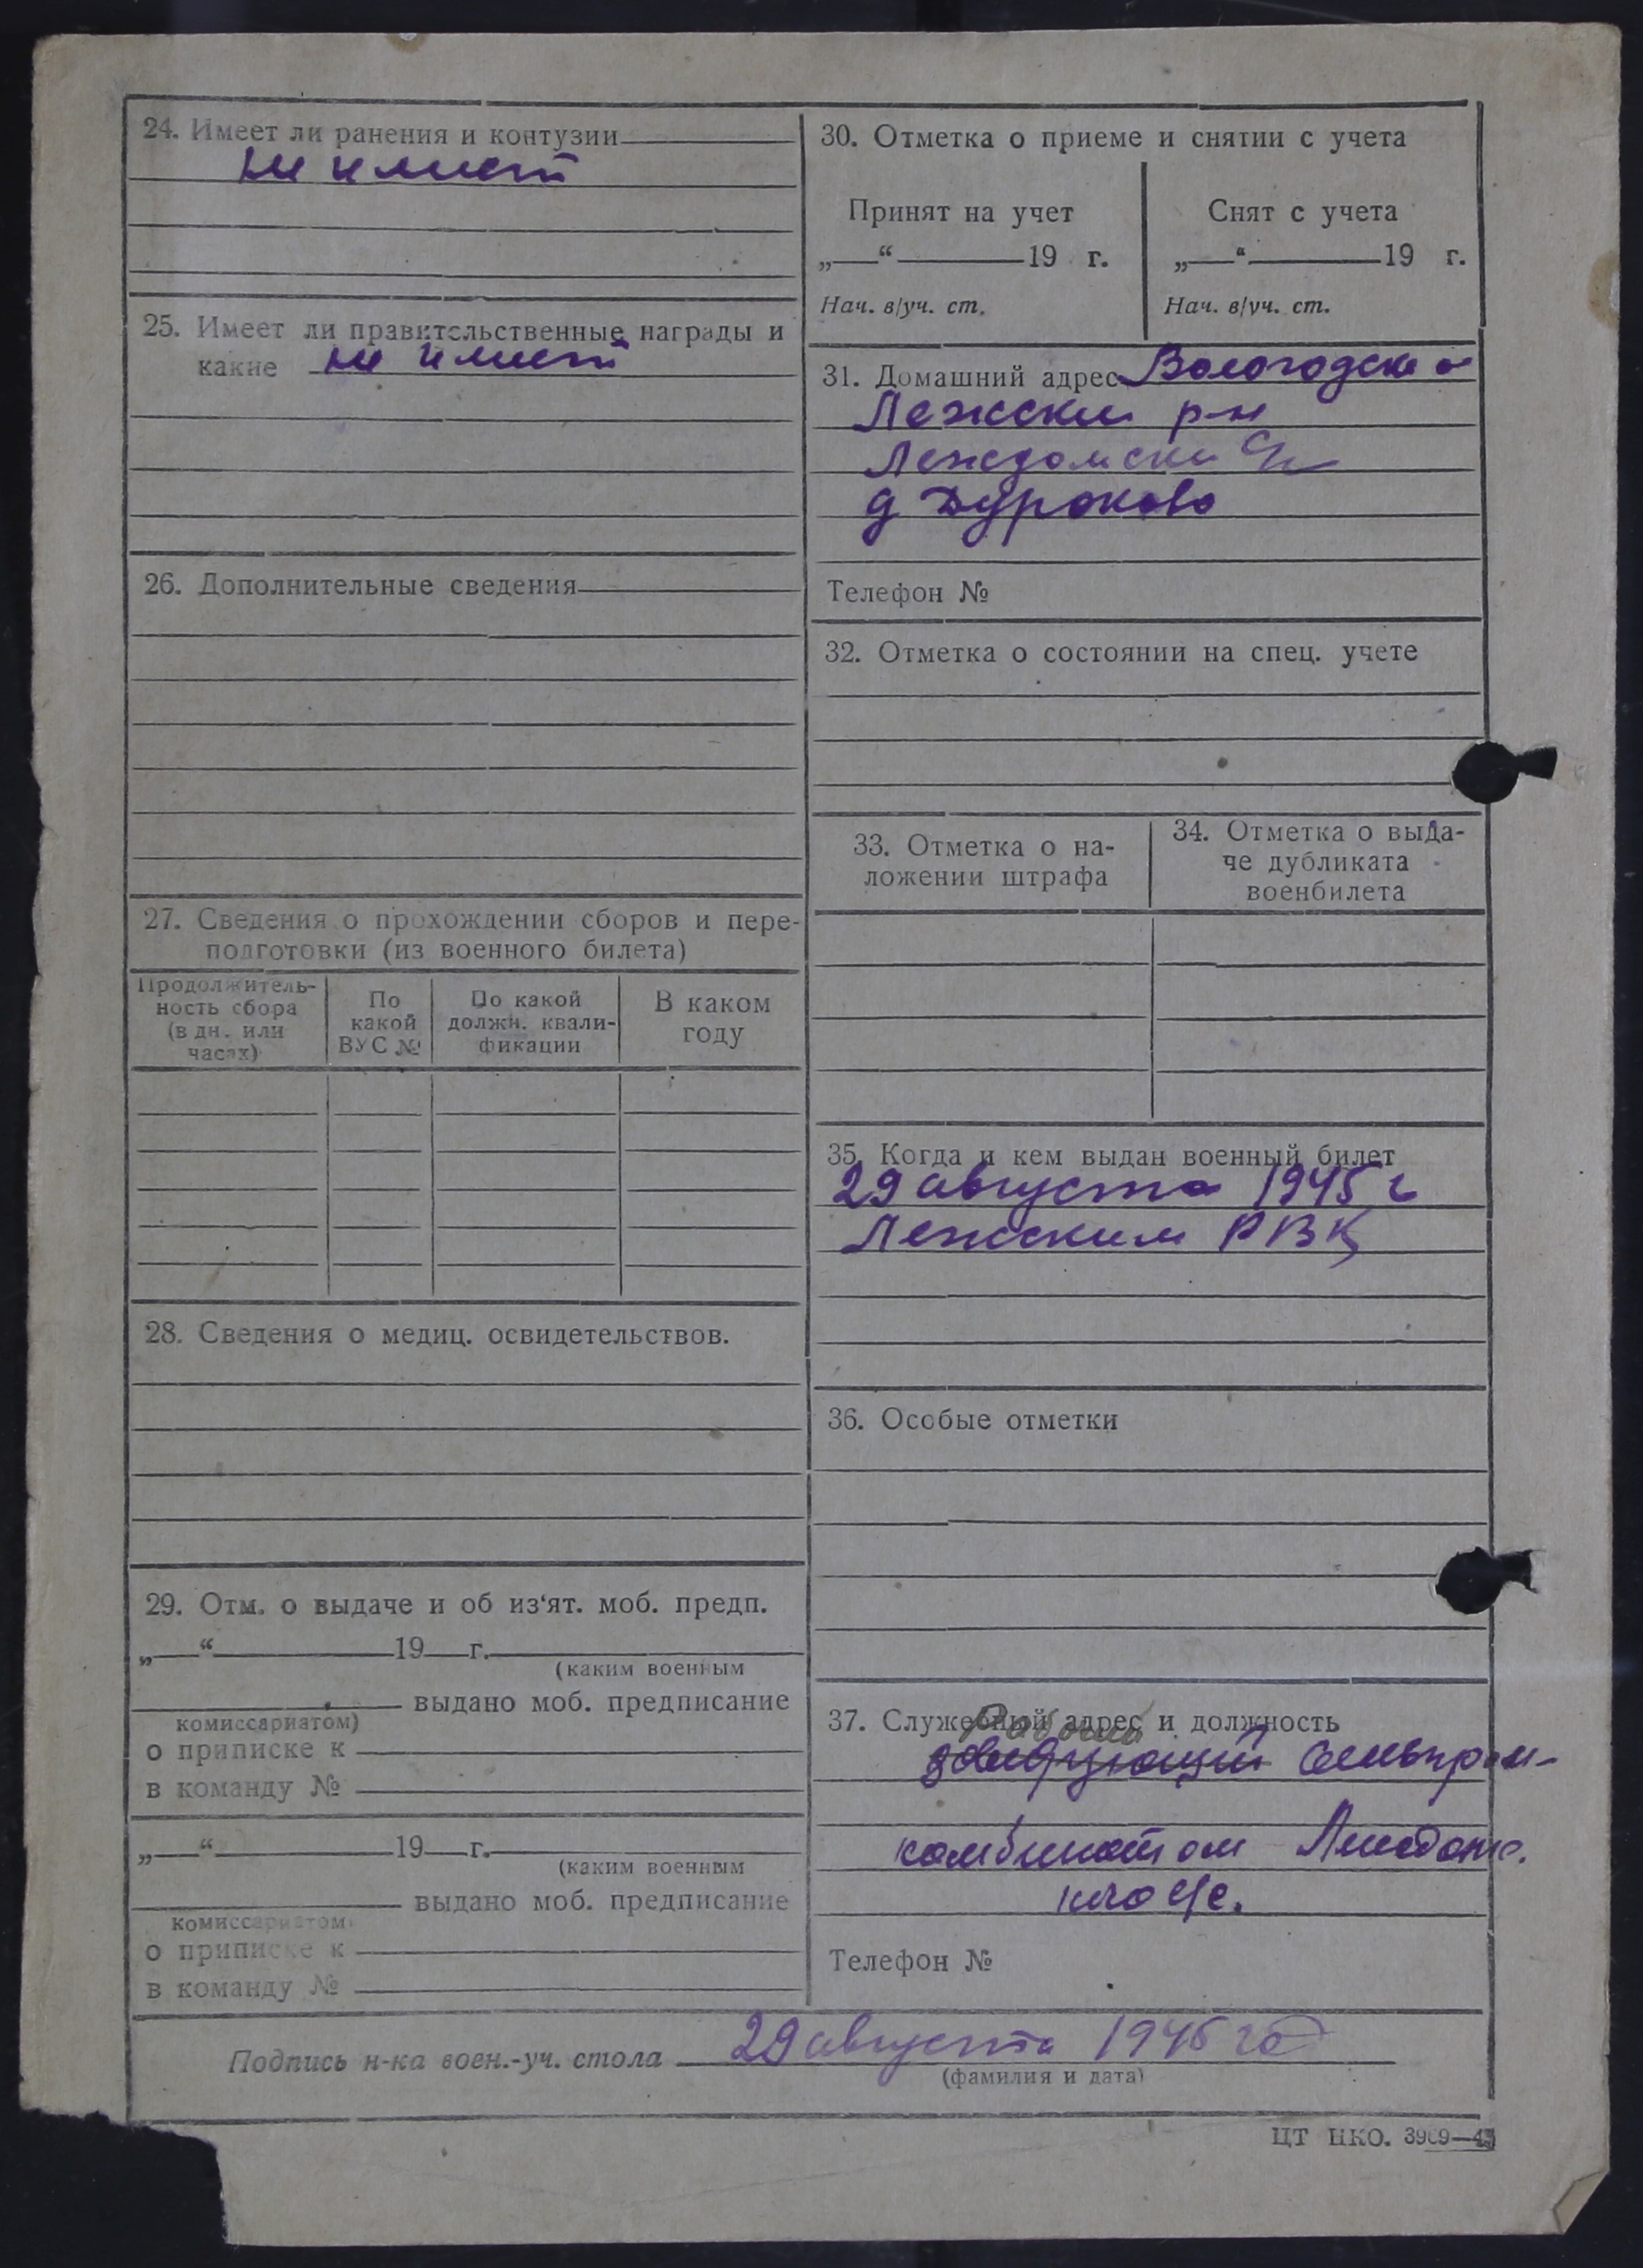 24. Имеет ли ранения и контузии
не имеет
25. Имеет ли правительственные награды и
какие не имеет
26. Дополнительные сведения
27. Сведения о прохождении сборов и пере-
подготовки (из военного билета)
Продолжитель-
ность сбора
(в дн. или
часах)
По
какой
ВУС №
По какой
должн. квали-
фикации
В каком
году
28. Сведения о медиц. освидетельствов.
29. Отм. о выдаче и об из‘ят. моб. предп.
„ “ 19 г.
(каким военным
выдано моб. предписание
комиссариатом)
о приписке к
в команду №
„ “ 19 г.
(каким военным
выдано моб. предписание
комиссариатом)
о приписке к
в команду №
30. Отметка о приеме и снятии с учета
Принят на учет
„ “ 19 г.
Нач. в/уч. ст.
Снят с учета
„ “ 19 г.
Нач. в/уч. ст.
31. Домашний адрес Вологодска о
Лежски р-н
Леждомски с/с
д Дуроково
Телефон №
32. Отметка о состоянии на спец. учете
33. Отметка о на-
ложении штрафа
34. Отметка о выда-
че дубликата
военбилета
35. Когда и кем выдан военный билет
29 августа 1945 г
Лежским РВК
36. Особые отметки
37. Служебный адрес и должность
Рабочий
заведующий сельпром-
комбинатом Леждом.
кого с/с.
Телефон №
Подпись н-ка воен.-уч. стола 29 августа 1945 год
(фамилия и дата)
ЦТ НКО. 3969—45